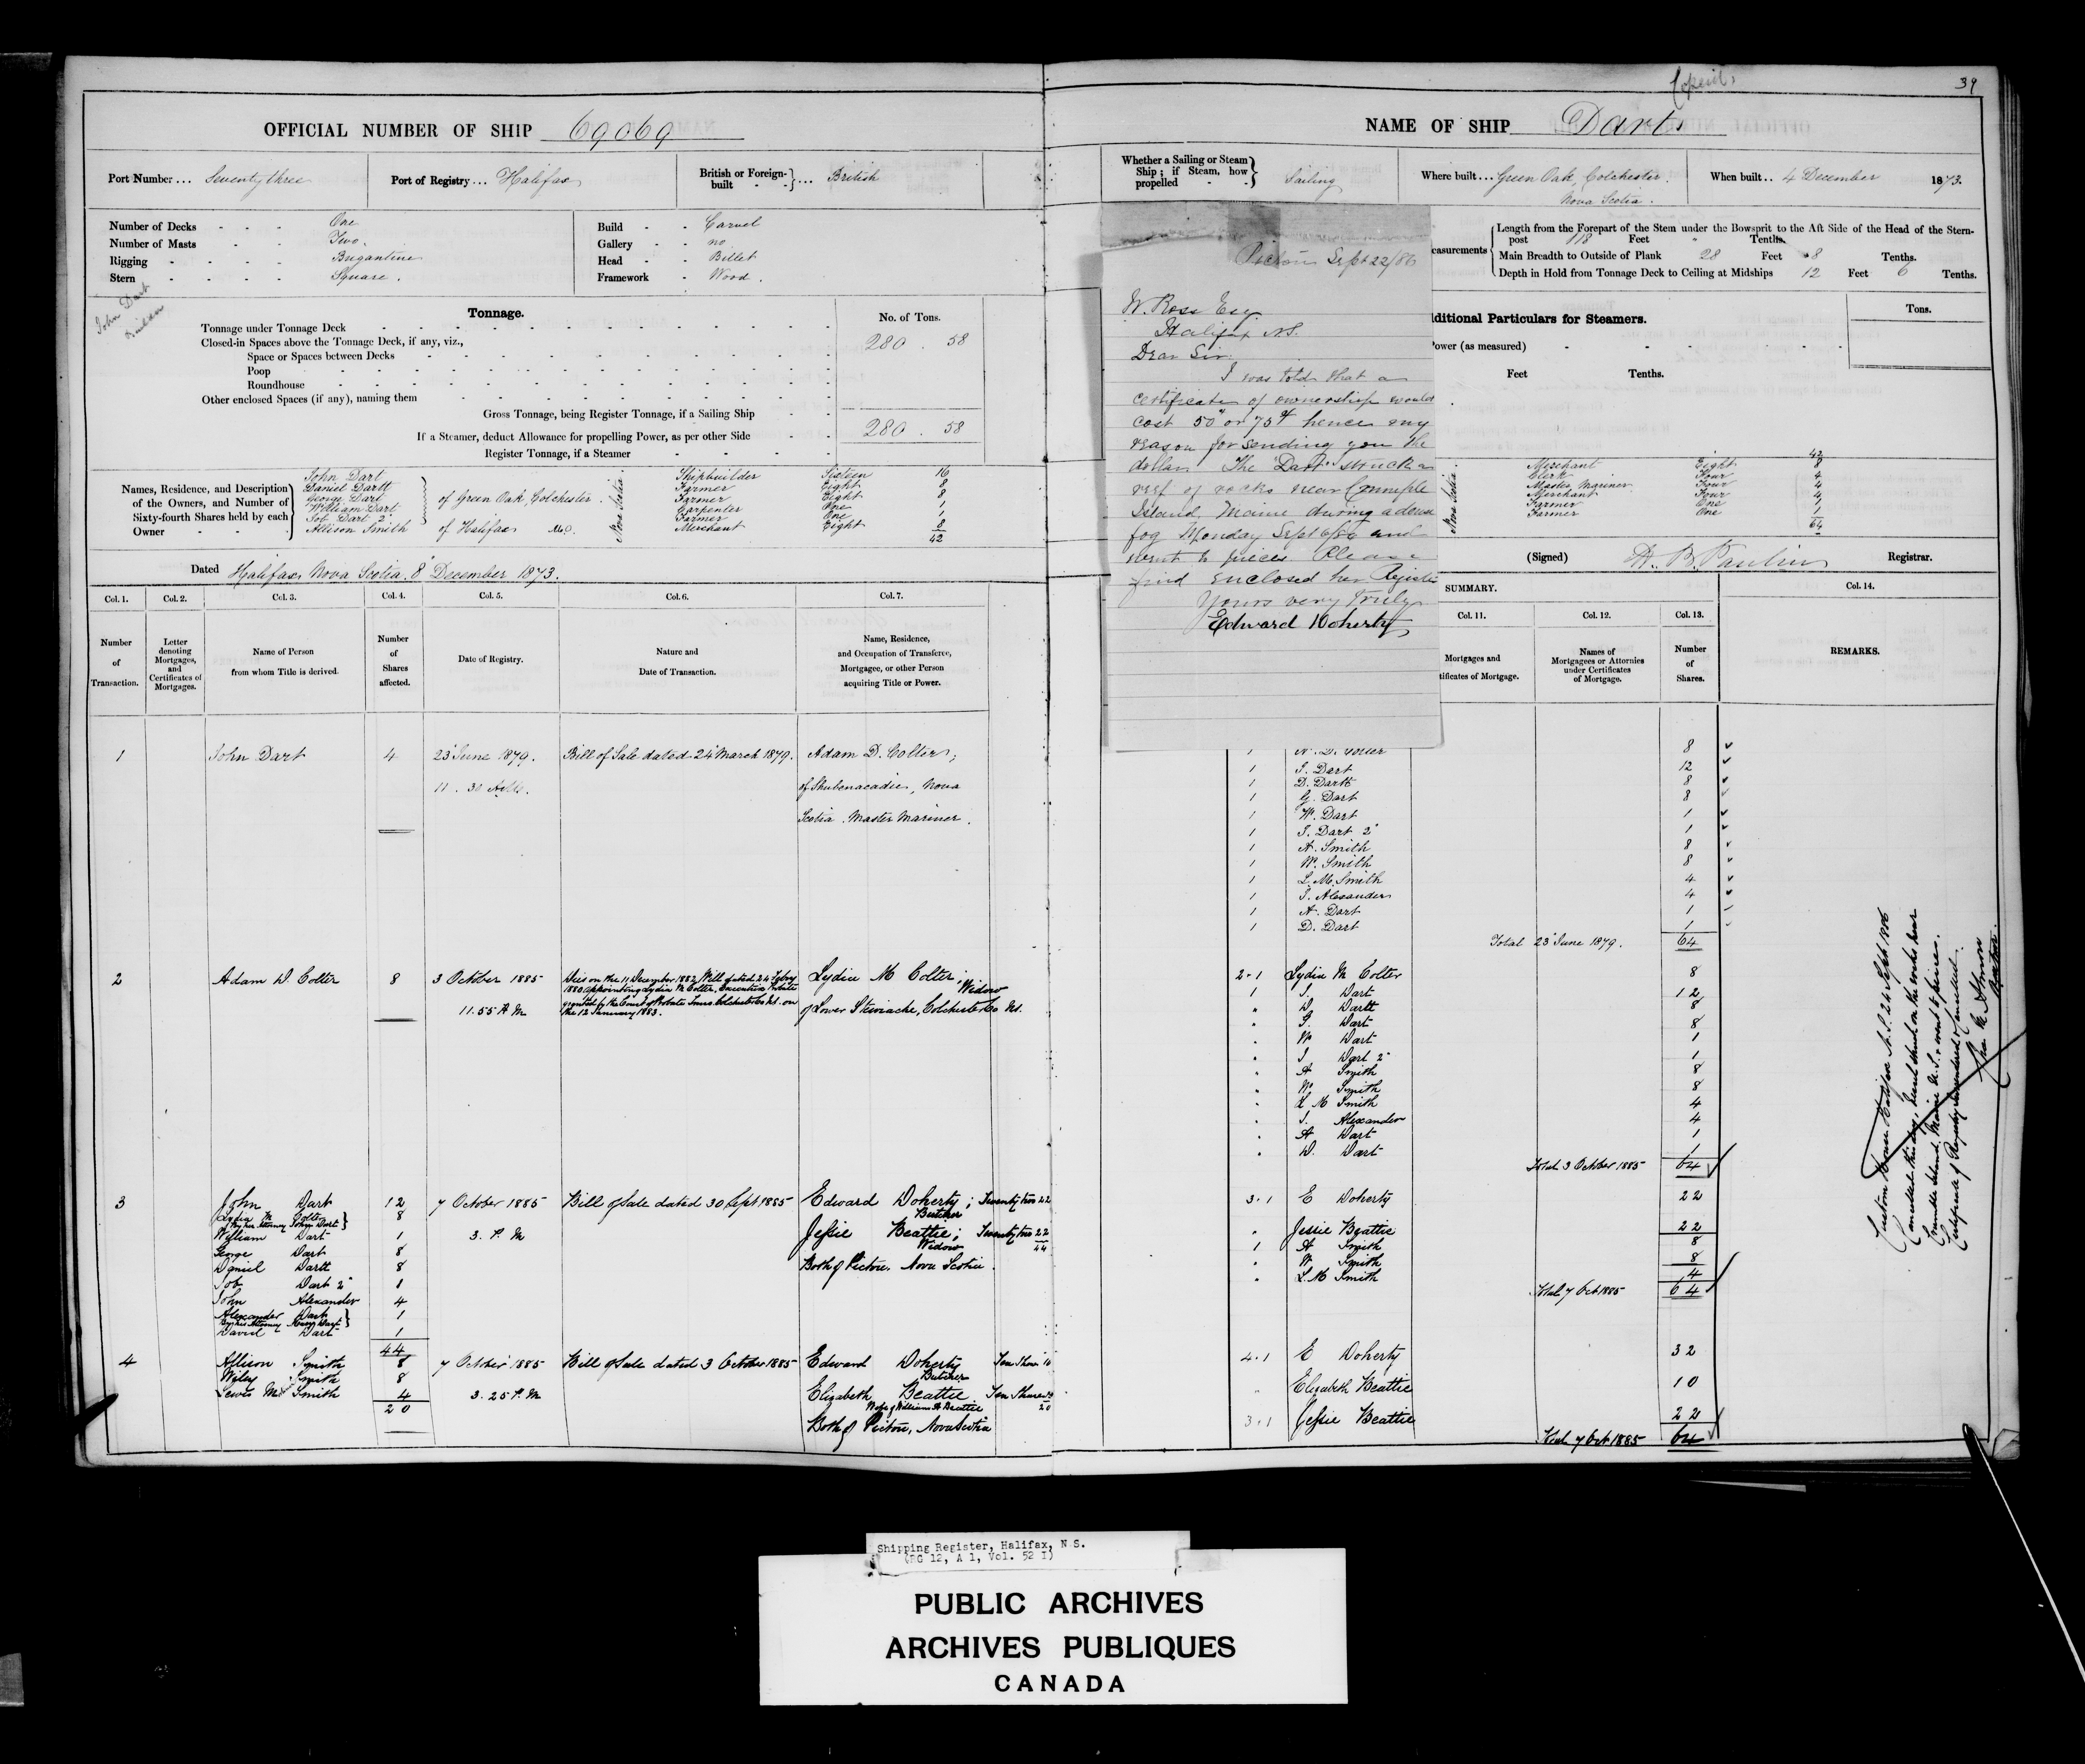 39
OFFICIAL NUMBER OF SHIP 69069
NAME OF SHIP Dart
Port Number... Seventy three
Port of Registry... Halifax
British or Foreign-built - - }... British
Whether a Sailing or Steam Ship; if Steam, how propelled - - } Sailing
Where built... Green Oak, Colchester Nova Scotia.
When built.. 4 December 1873.
Number of Decks - - - One
Number of Masts - - Two.
Rigging - - - - Brigantine
Stern - - - - Square.
Build - - Carvel
Gallery - - no
Head - - Billet
Framework - Wood.
easurements
Length from the Forepart of the Stem under the Bowsprit to the Aft Side of the Head of the Stern-
post 118 Feet " Tenths.
Main Breadth to Outside of Plank 28 Feet 8 Tenths.
Depth in Hold from Tonnage Deck to Ceiling at Midships 12 Feet 6 Tenths.
John Dart
Tonnage.
No. of Tons.
Tonnage under Tonnage Deck
280 . 58
Closed-in Spaces above the Tonnage Deck, if any, viz.,
Space or Spaces between Decks
Poop
Roundhouse
Other enclosed Spaces (if any), naming them
Gross Tonnage, being Register Tonnage, if a Sailing Ship
280 . 58
If a Steamer, deduct Allowance for propelling Power, as per other Side
Register Tonnage, if a Steamer
ditional Particulars for Steamers.
Tons.
ower (as measured)
Feet Tenths.
Names, Residence, and Description
of the Owners, and Number of
Sixty-fourth Shares held by each
Owner - -
John Dart Shipbuilder Sixteen 16
Daniel Dartt Farmer Eight 8
George Dart Farmer Eight 8
William Dart Carpenter One 1
Job Dart 2" Farmer One 1
of Green Oak, Colchester.
Allison Smith of Halifax Merchant Eight 8
42
Nova Scotia
42
Nova Scotia
Merchant Eight 8
Clerk Four 4
Master Mariner Four 4
Merchant Four 4
Farmer One 1
Farmer One 1
64
Dated Halifax Nova Scotia, 8 December 1873.
(Signed) H. B. Paulin Registrar.
Pictou Sept 22/86
W. Ross Esq
Halifax N.S.
Dear Sir
I was told that a
certificate of ownership would
cost 50" or 75¢ hence my
reason for sending you the
dollar. The "Dart" struck a
reef of rocks near
Island, Maine during a dense
fog Monday Sept 6/86 and
went to pieces. Please
find enclosed her Register
Yours very truly
Edward Doherty
SUMMARY.
Col. 1. Col. 2. Col. 3. Col. 4. Col. 5. Col. 6. Col. 7.
Col. 11. Col. 12. Col. 13. Col. 14.
Number of Transaction.
Letter denoting Mortgages, and Certificates of Mortgages.
Name of Person from whom Title is derived.
Number of Shares affected.
Date of Registry.
Nature and Date of Transaction.
Name, Residence, and Occupation of Transferee, Mortgagee, or other Person acquiring Title or Power.
Mortgages and
tificates of Mortgage.
Names of Mortgagees or Attornies under Certificates of Mortgage.
Number of Shares.
REMARKS.
1 John Dart 4 23 June 1879. Bill of Sale dated 24 March 1879. Adam D. Colter,
11. 30 A.M. of Shubenacadie, Nova
Scotia. Master Mariner.
1 A. D. Colter 8
1 J. Dart 12
1 D. Dartt 8
1 G. Dart 8
1 W. Dart 1
1 J. Dart 2" 1
1 A. Smith 8
1 W. Smith 8
1 L. M. Smith 4
1 J. Alexander 4
1 A. Dart 1
1 D. Dart 1
Total 23 June 1879. 64
2 Adam D. Colter 8 3 October 1885
11.55 A M
Died on the 11 December 1882 Will dated 24 Febry
1880 appointing Lydia M Colter, Executrix Probate
granted by the Court of Probate Truro Colchester Co NS. on
the 12 January 1883.
Lydia M Colter; Widow
of Lower Stewiacke, Colchester Co NS.
2-1 Lydia M Colter 8
1 J. Dart 12
" D Dartt 8
" G. Dart 8
" W Dart 1
" J Dart 2" 1
" A Smith 8
" W. Smith 8
" L M Smith 4
" J. Alexander 4
" A Dart 1
" D. Dart 1
Total 3 October 1885 64
3 John Dart 12 7 October 1885 Bill of Sale dated 30 Sept 1885 Edward Doherty; Twenty two 22
Butcher
Lydia M Colter 8
by her Attorney John Dart
William Dart 1 3. P. M Jessie Beattie; Twenty two 22
Widow 44
George Dart 8
Daniel Dartt 8 Both of Pictou. Nova Scotia.
Job Dart 2" 1
John Alexander 4
Alexander Dart 1
by his Attorney Dart
David Dart 1
44
3.1 E Doherty 22
" Jessie Beattie 22
1 A Smith 8
" W Smith 8
" L. M Smith 4
Total 7 Oct 1885 64
4 Allison Smith 8 7 October 1885 Bill of Sale dated 3 October 1885 Edward Doherty Ten Shares 10
Butcher
Wiley Smith 8
Lewis M Smith 4 3. 25 P. M Elizabeth Beattie Ten Shares 10
20 Wife of William A Beattie 20
Both of Pictou, Nova Scotia
4.1 E Doherty 32
" Elizabeth Beattie 10
3.1 Jessie Beattie 22
Total 7 Oct 1885 64
Custom House Halifax N.S. 24 Sept 1886
Cancelled this day, Vessel struck on the rocks near
Island, Maine U.S. & went to pieces.
Certificate of Registry surrendered & cancelled.
Shipping Register, Halifax, N.S.
(RG 12, A 1, Vol. 52 I)
PUBLIC ARCHIVES
ARCHIVES PUBLIQUES
CANADA